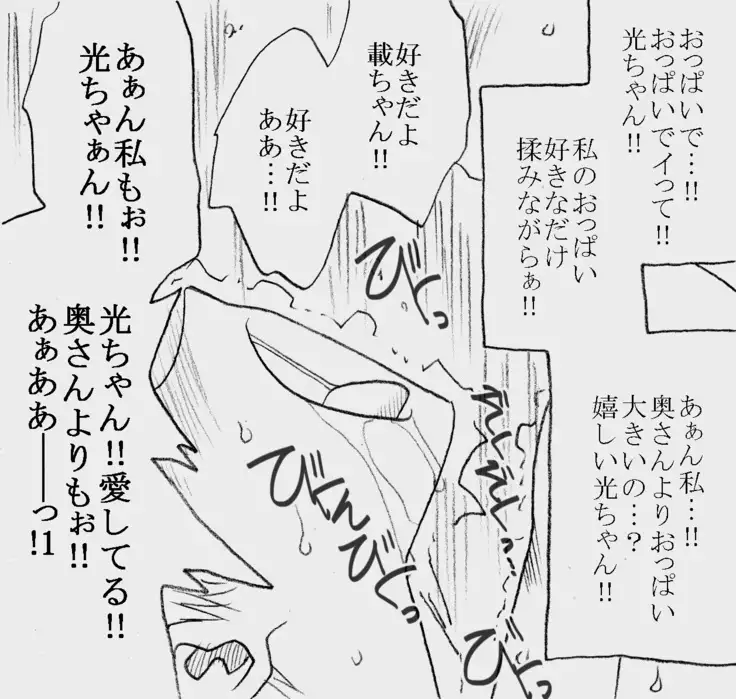 おっぱいで…!!
おっぱいでイって!!
光ちゃん!!
私のおっぱい
好きなだけ
揉みながらぁ!!
あぁん私…!!
奥さんよりおっぱい
大きいの…?
嬉しい光ちゃん!!
好きだよ
載ちゃん!!
好きだよ
ああ…!!
びくっ
びくん
びくっ
びくっ
あぁん私もぉ!!
光ちゃぁん!!
光ちゃん!!愛してる!!
奥さんよりもぉ!!
あぁああ――っ!1